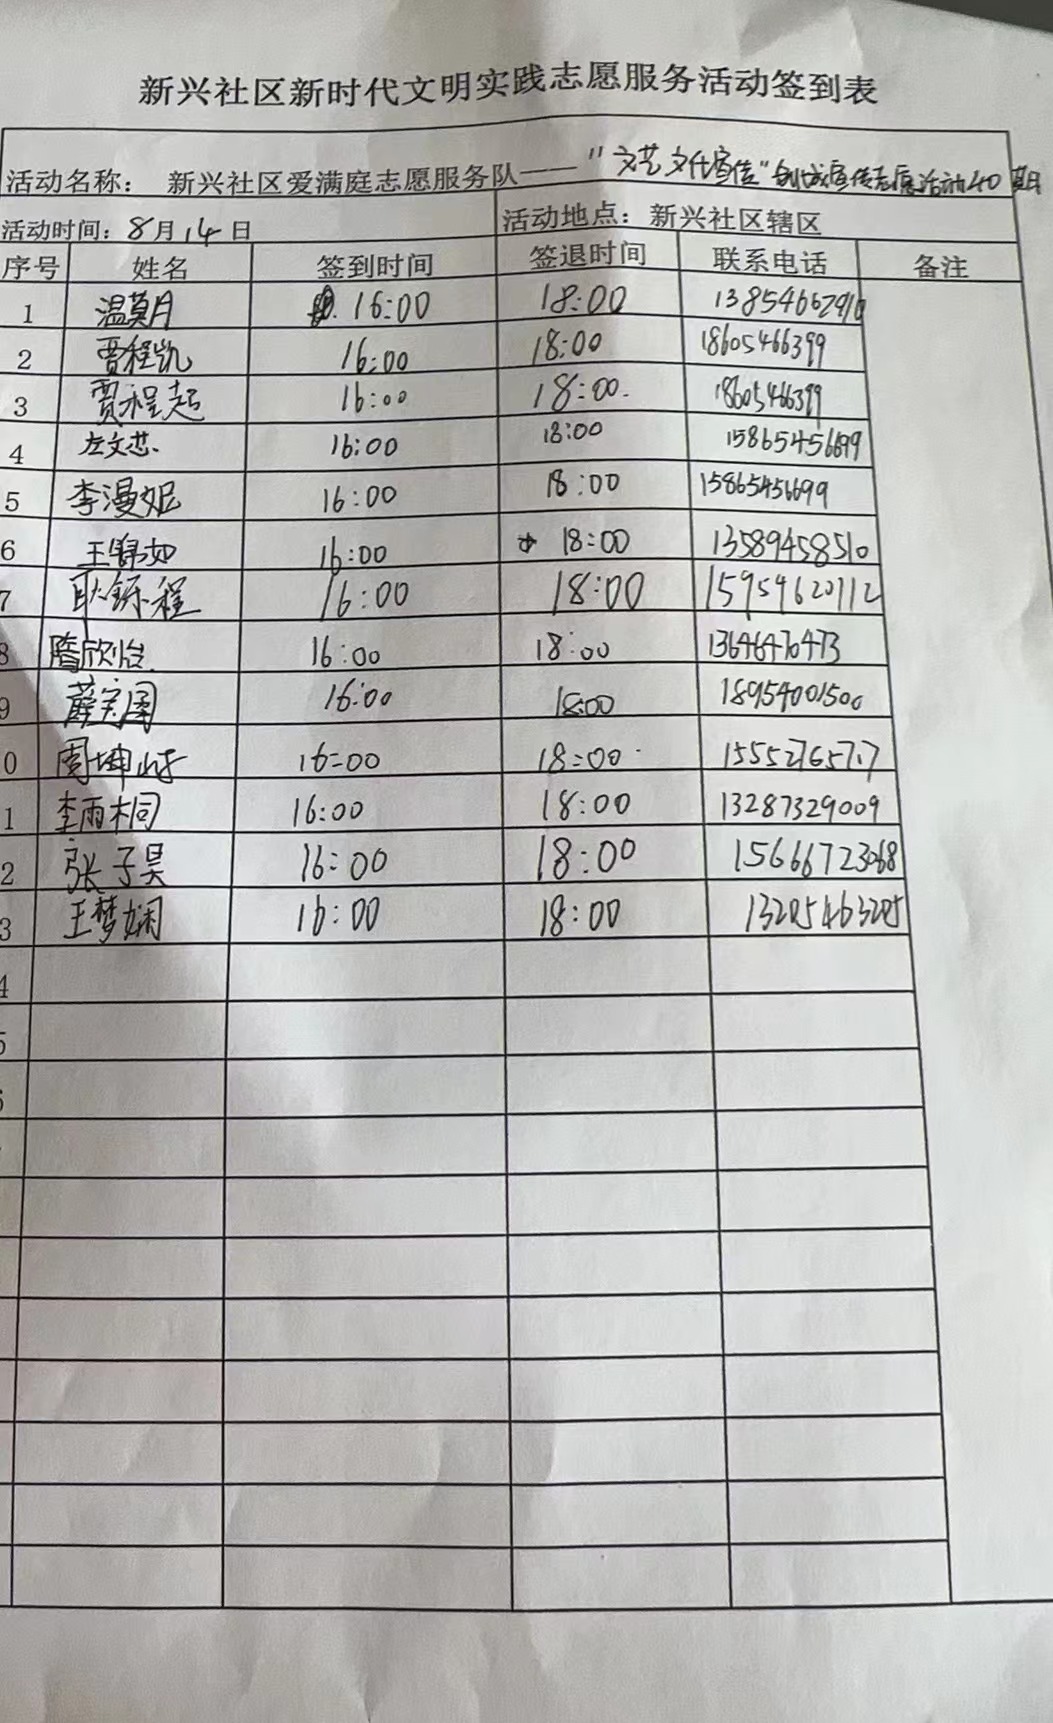 新兴社区新时代文明实践志愿服务活动签到表
活动名称： 新兴社区爱满庭志愿服务队——"文艺文化宣传"创城宣传志愿活动40期
活动时间：8月14日 活动地点：新兴社区辖区
序号 姓名 签到时间 签退时间 联系电话 备注
1 温莫月 16:00 18:00
2 贾程凯 16:00 18:00 18605466399
3 贾程起 16:00 18:00. 18605466399
4 左文芯 16:00 18:00 15865456699
5 李漫妮 16:00 18:00 15865456699
6 王锦如 16:00 18:00 13589458510
7 耿铄程 16:00 18:00 15954620112
8 隋欣怡 16:00 18:00 13646470473
9 薛宝国 16:00 18:00 18954001500
0 周坤 16:00 18:00
1 李雨桐 16:00 18:00 13287329009
2 张子昊 16:00 18:00 15666723068
3 王梦娴 16:00 18:00 13205463205
4
5
6